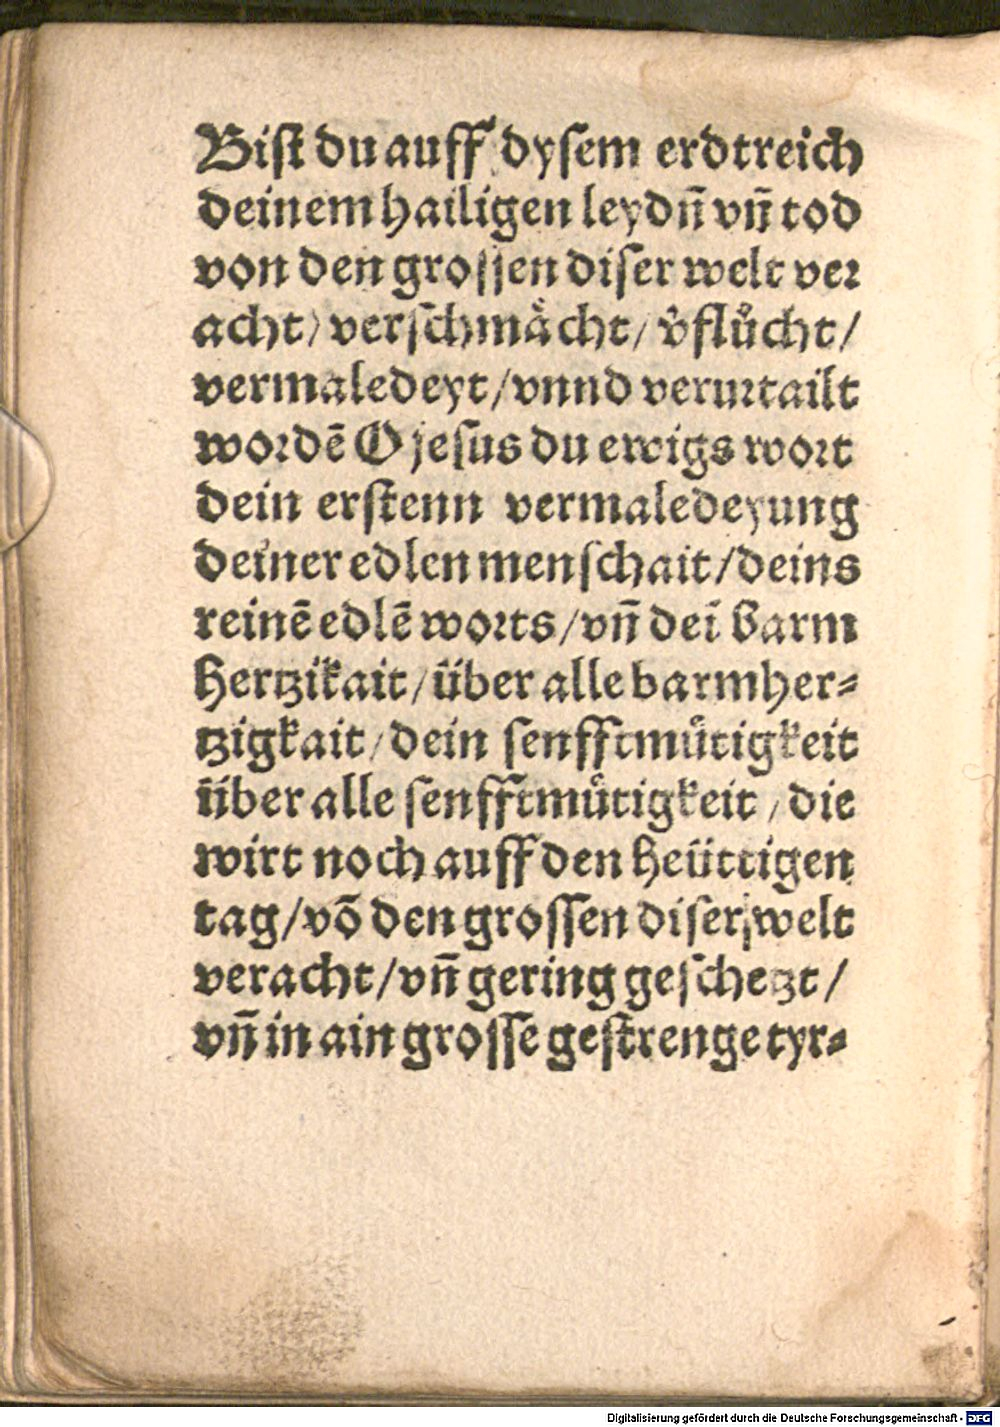 Bist du auff dysem erdtreich
deinem hailigen leydn̄ vn̄ tod
von den grossen diser welt ver
acht/ verschmaͤcht/ v̄fluͦcht/
vermaledeyt/ vnnd verurtailt
wordē O jesus du ewigs wort
dein erstenn vermaledeyung
deiner edlen menschait/ deins
reinē edlē worts/ vn̄ deī barm
hertzikait/ über alle barmher-
tzigkait/ dein senfftmuͤtigkeit
über alle senfftmuͤtigkeit/ die
wirt noch auff den heüttigen
tag/ vō den grossen diser welt
veracht/ vn̄ gering geschetzt/
vn̄ in ain grosse gestrenge tyr-
Digitalisierung gefördert durch die Deutsche Forschungsgemeinschaft - DFG